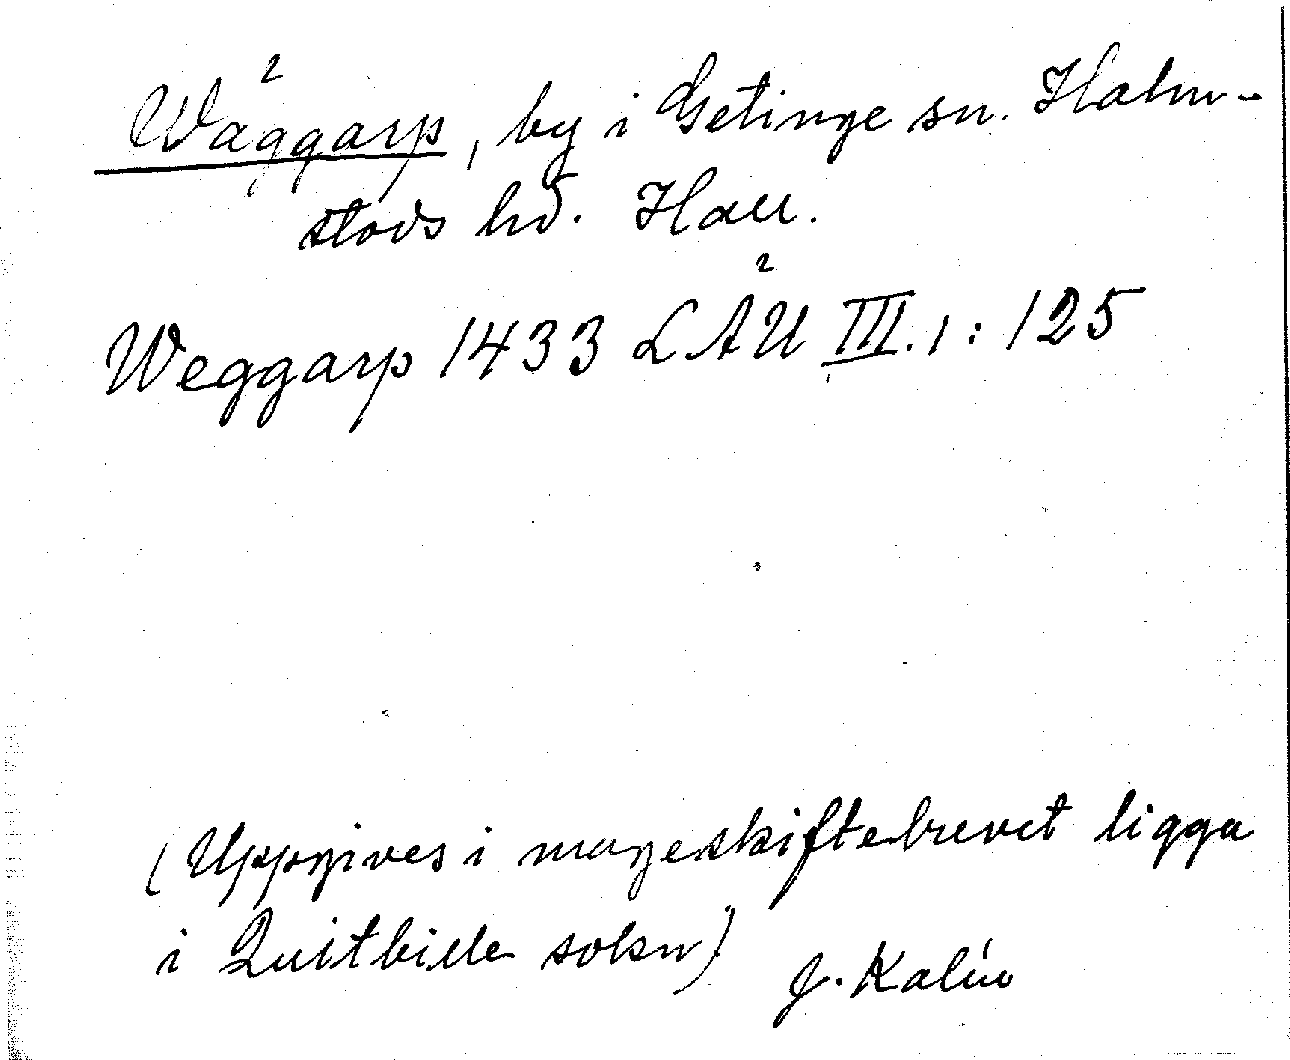 Wäggarp, by i Getinge sn. Halm-
stads hd. Hall.
Weggarp 1433 LÄU III.1:125
(Uppgives i mageskiftebrevet ligga
i Quitbille sokn)
J. Kalén